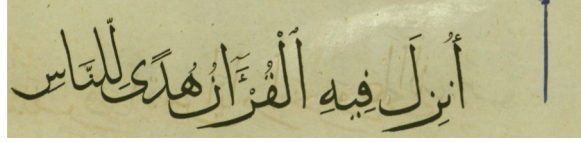 أُنزِلَ فِيهِ ٱلْقُرْءَانُ هُدًى لِّلنَّاسِ